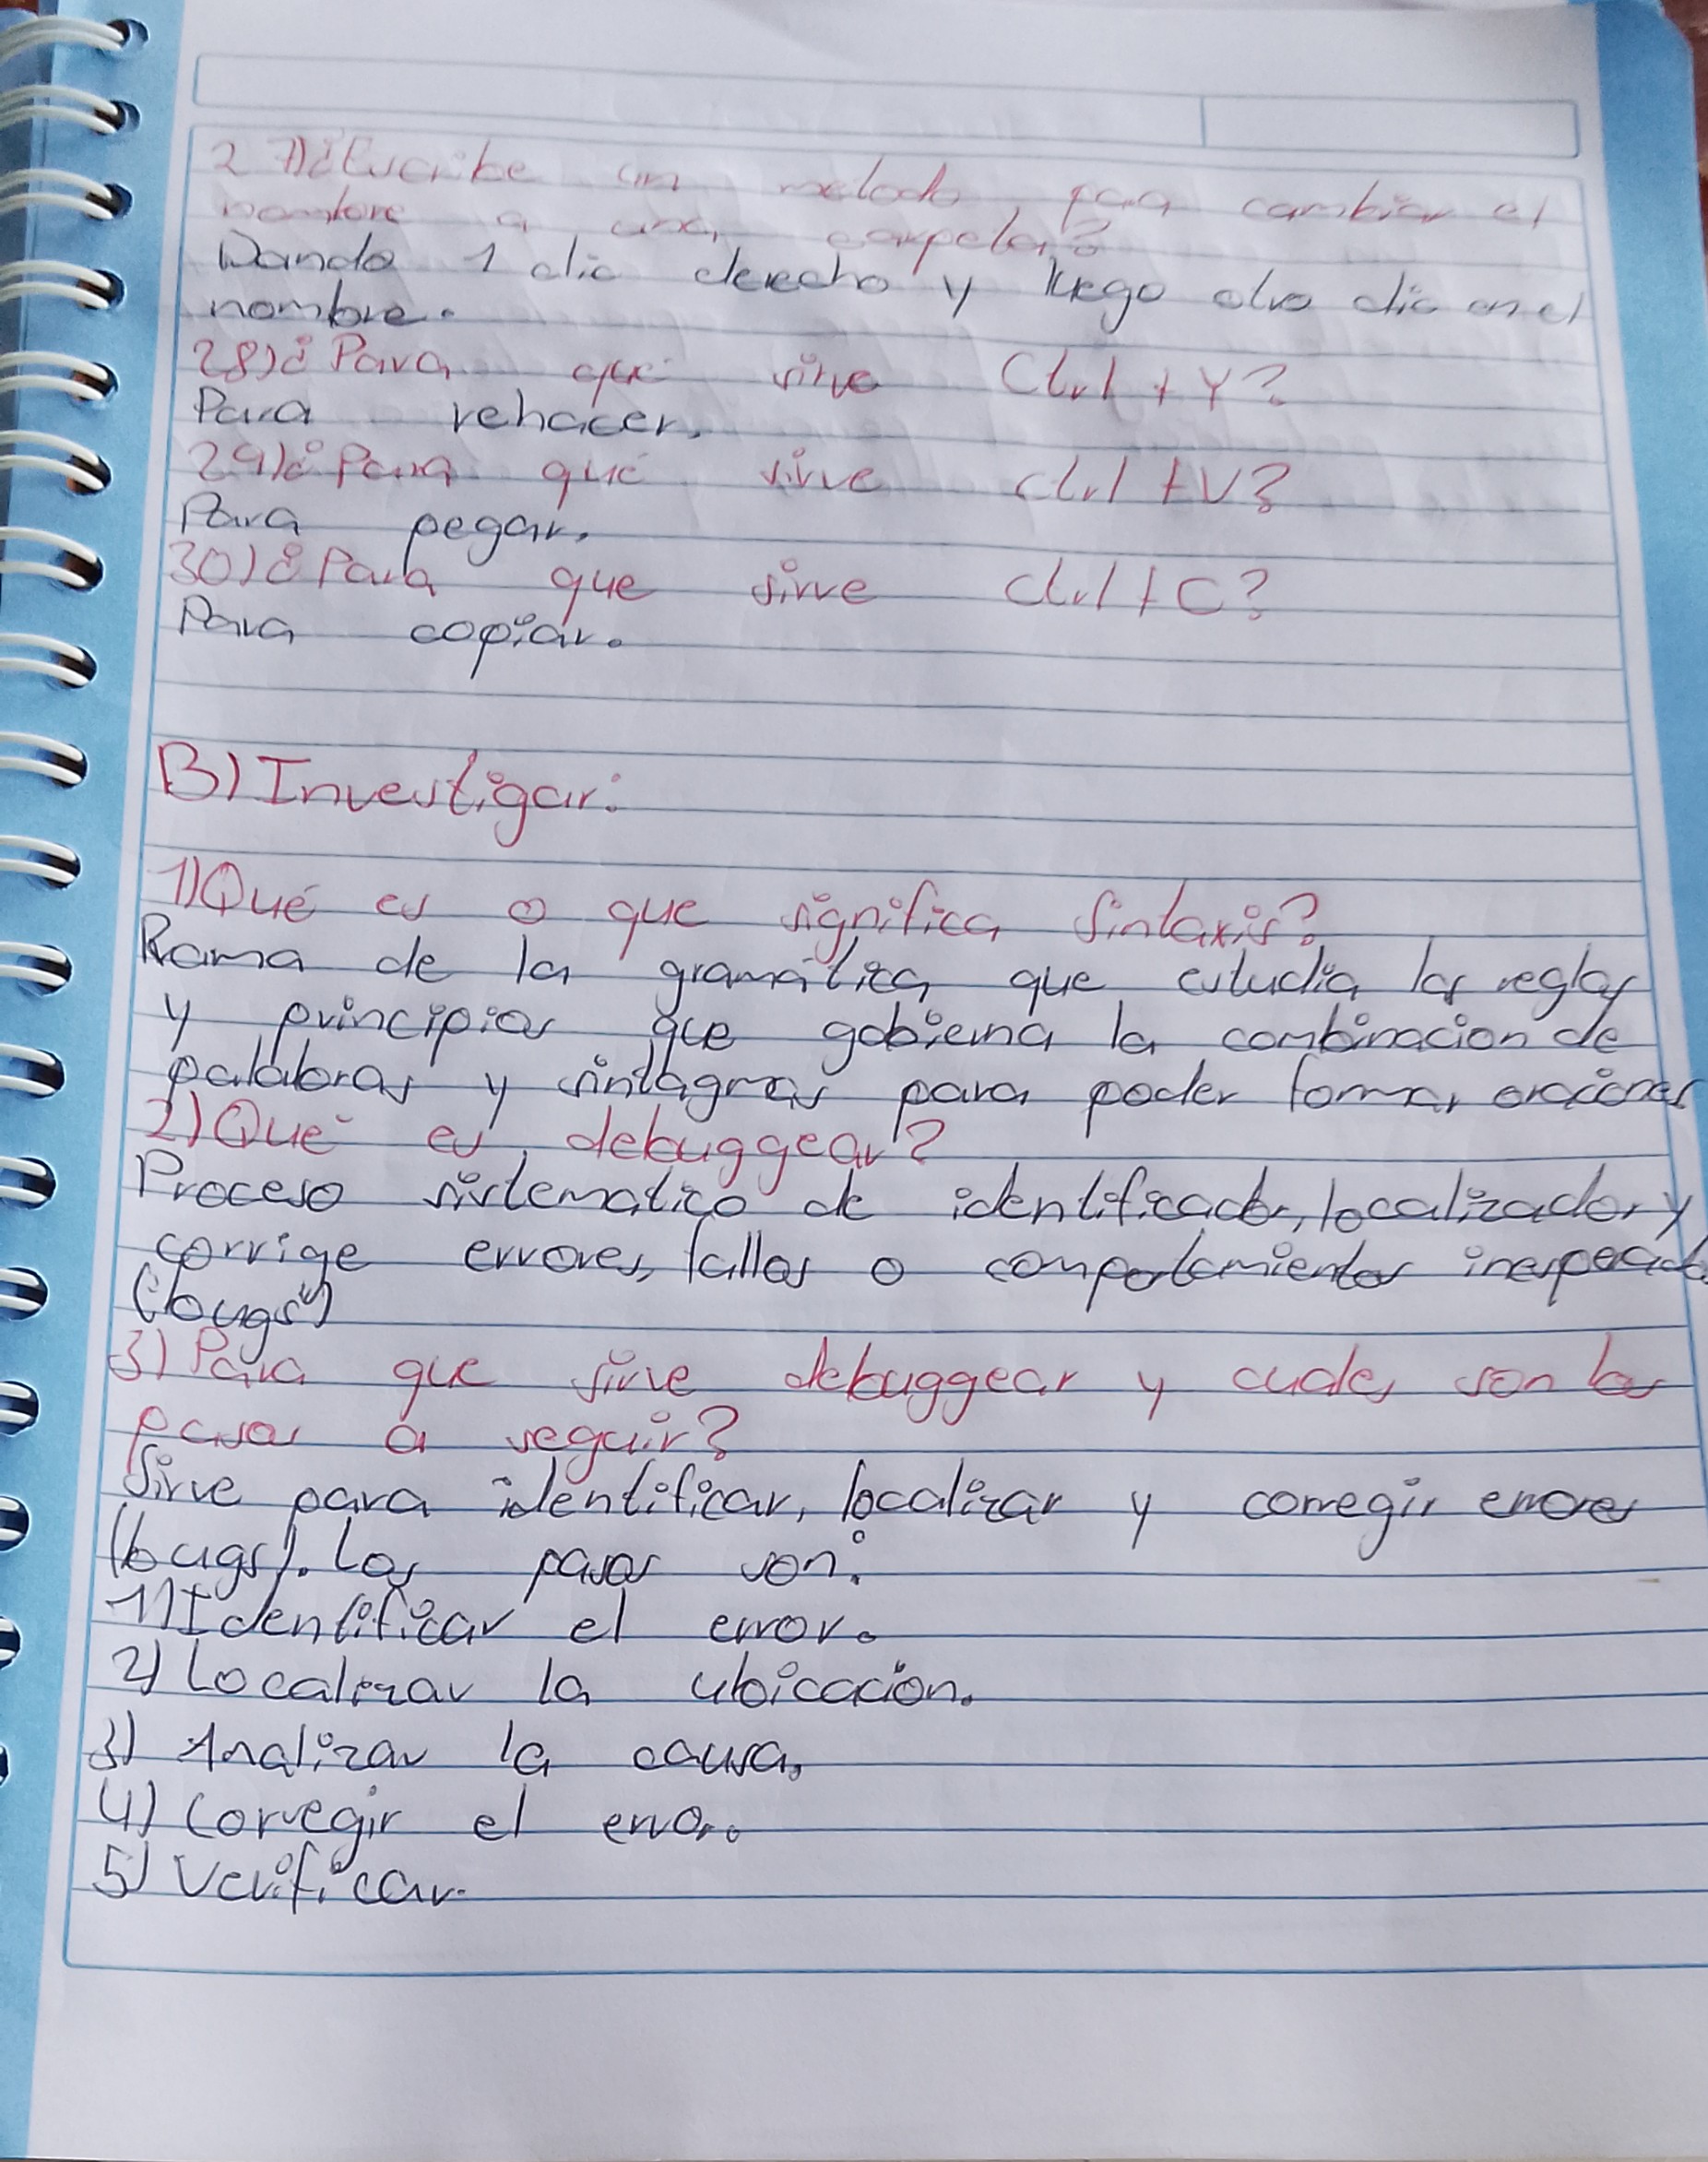 27)¿Escribe un metodo para cambiar el
nombre a una carpeta?
Dando 1 clic derecho y luego otro clic en el
nombre.
28)¿Para qué sirve Ctrl + Y?
Para rehacer.
29)¿Para qué sirve ctrl + V?
Para pegar.
30)¿Para que sirve ctrl + C?
Para copiar.
B) Investigar:
1)Qué es o que significa Sintaxis?
Rama de la gramática que estudia las reglas
y principios que gobierna la combinacion de
palabras y sintagmas para poder formar oraciones
2)Qué es debuggear?
Proceso sistematico de identificador, localizador y
corrige errores, fallos o comportamientos inesperados
("bugs")
3) Para que sirve debuggear y cuales son los
pasos a seguir?
Sirve para identificar, localizar y corregir errores
(bugs). Los pasos son:
1)Identificar el error.
2) Localizar la ubicación.
3) Analizar la causa.
4) Corregir el error.
5) Verificar.